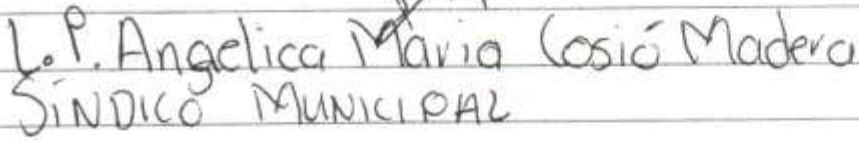 L.P. Angelica Maria Cosió Madera
SíNDICO MUNICIPAL